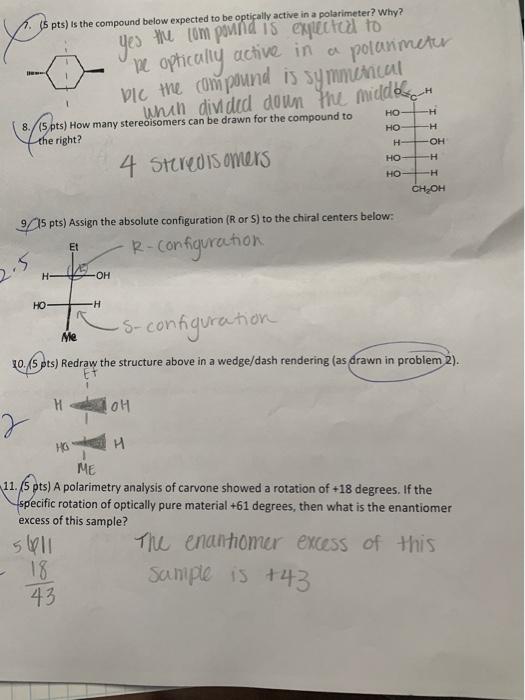 7. (5 pts) Is the compound below expected to be optically active in a polarimeter? Why?
yes the compound is expected to
be optically active in a polarimeter
b/c the compound is symmetrical
when divided down the middle
8. (5 pts) How many stereoisomers can be drawn for the compound to
the right?
4 stereoisomers
O C H
HO H
HO H
H OH
HO H
HO H
CH2OH
9. (5 pts) Assign the absolute configuration (R or S) to the chiral centers below:
2.5
Et
R-configuration
H OH
HO H
S-configuration
Me
10. (5 pts) Redraw the structure above in a wedge/dash rendering (as drawn in problem 2).
2
Et
H OH
HO H
ME
11. (5 pts) A polarimetry analysis of carvone showed a rotation of +18 degrees. If the
specific rotation of optically pure material +61 degrees, then what is the enantiomer
excess of this sample?
- 18
43
The enantiomer excess of this
sample is +43